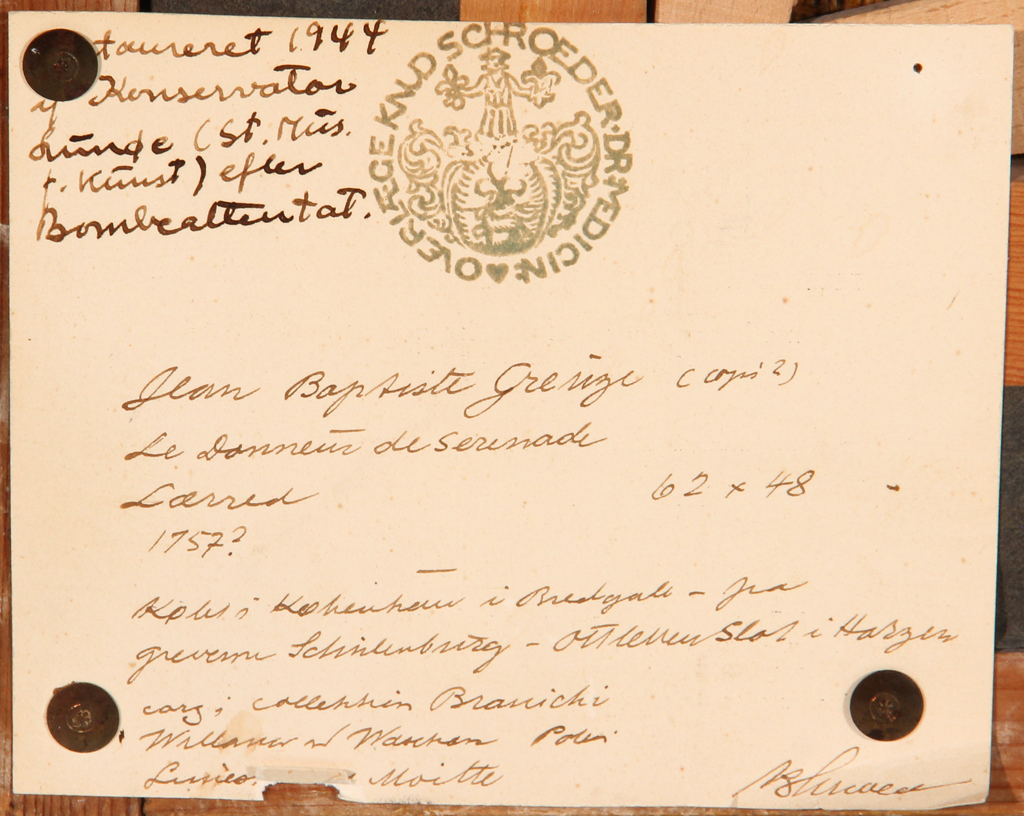 taureret 1944
af Konservator
Lunde (St. Mus.
f. Kunst) efter
Bombeattentat.
OVERLÆGE KNUD SCHROEDER · DR MEDICIN:
Jean Baptiste Greuze (copi?)
Le Donneur de Serenade
Lærred 62 x 48 -
1757?
Købt i København i Bredgade - fra
greverne Schulenburg - Ottleben Slot i Harzen
orig: collektion Branicki
Willanow v Warschau Polen
Moitte